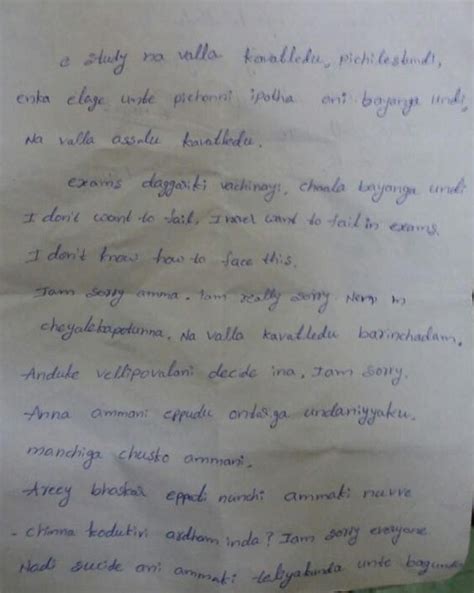 e study na valla kavatledu, pichilestundi,
enka elage unte pichonni ipotha ani bayanga undi,
Na valla assalu kavatledu.
exams daggariki vachinayi, chaala bayanga undi
I don't want to fail, I never want to fail in exams
I don't know how to face this.
Iam sorry amma. iam really sorry
cheyalekapotunna. Na valla kavatledu barinchadam.
Anduke vellipovalani decide ina, Iam sorry.
Anna ammani eppudu ontariga undaniyyaku.
manchiga chusko ammani.
Areey bhaskar eppadi nunchi ammaki nuvve
chinna kodukivi ardham inda? Iam sorry everyone.
Nadi sucide ani ammaki teliyakunda unte bagundu